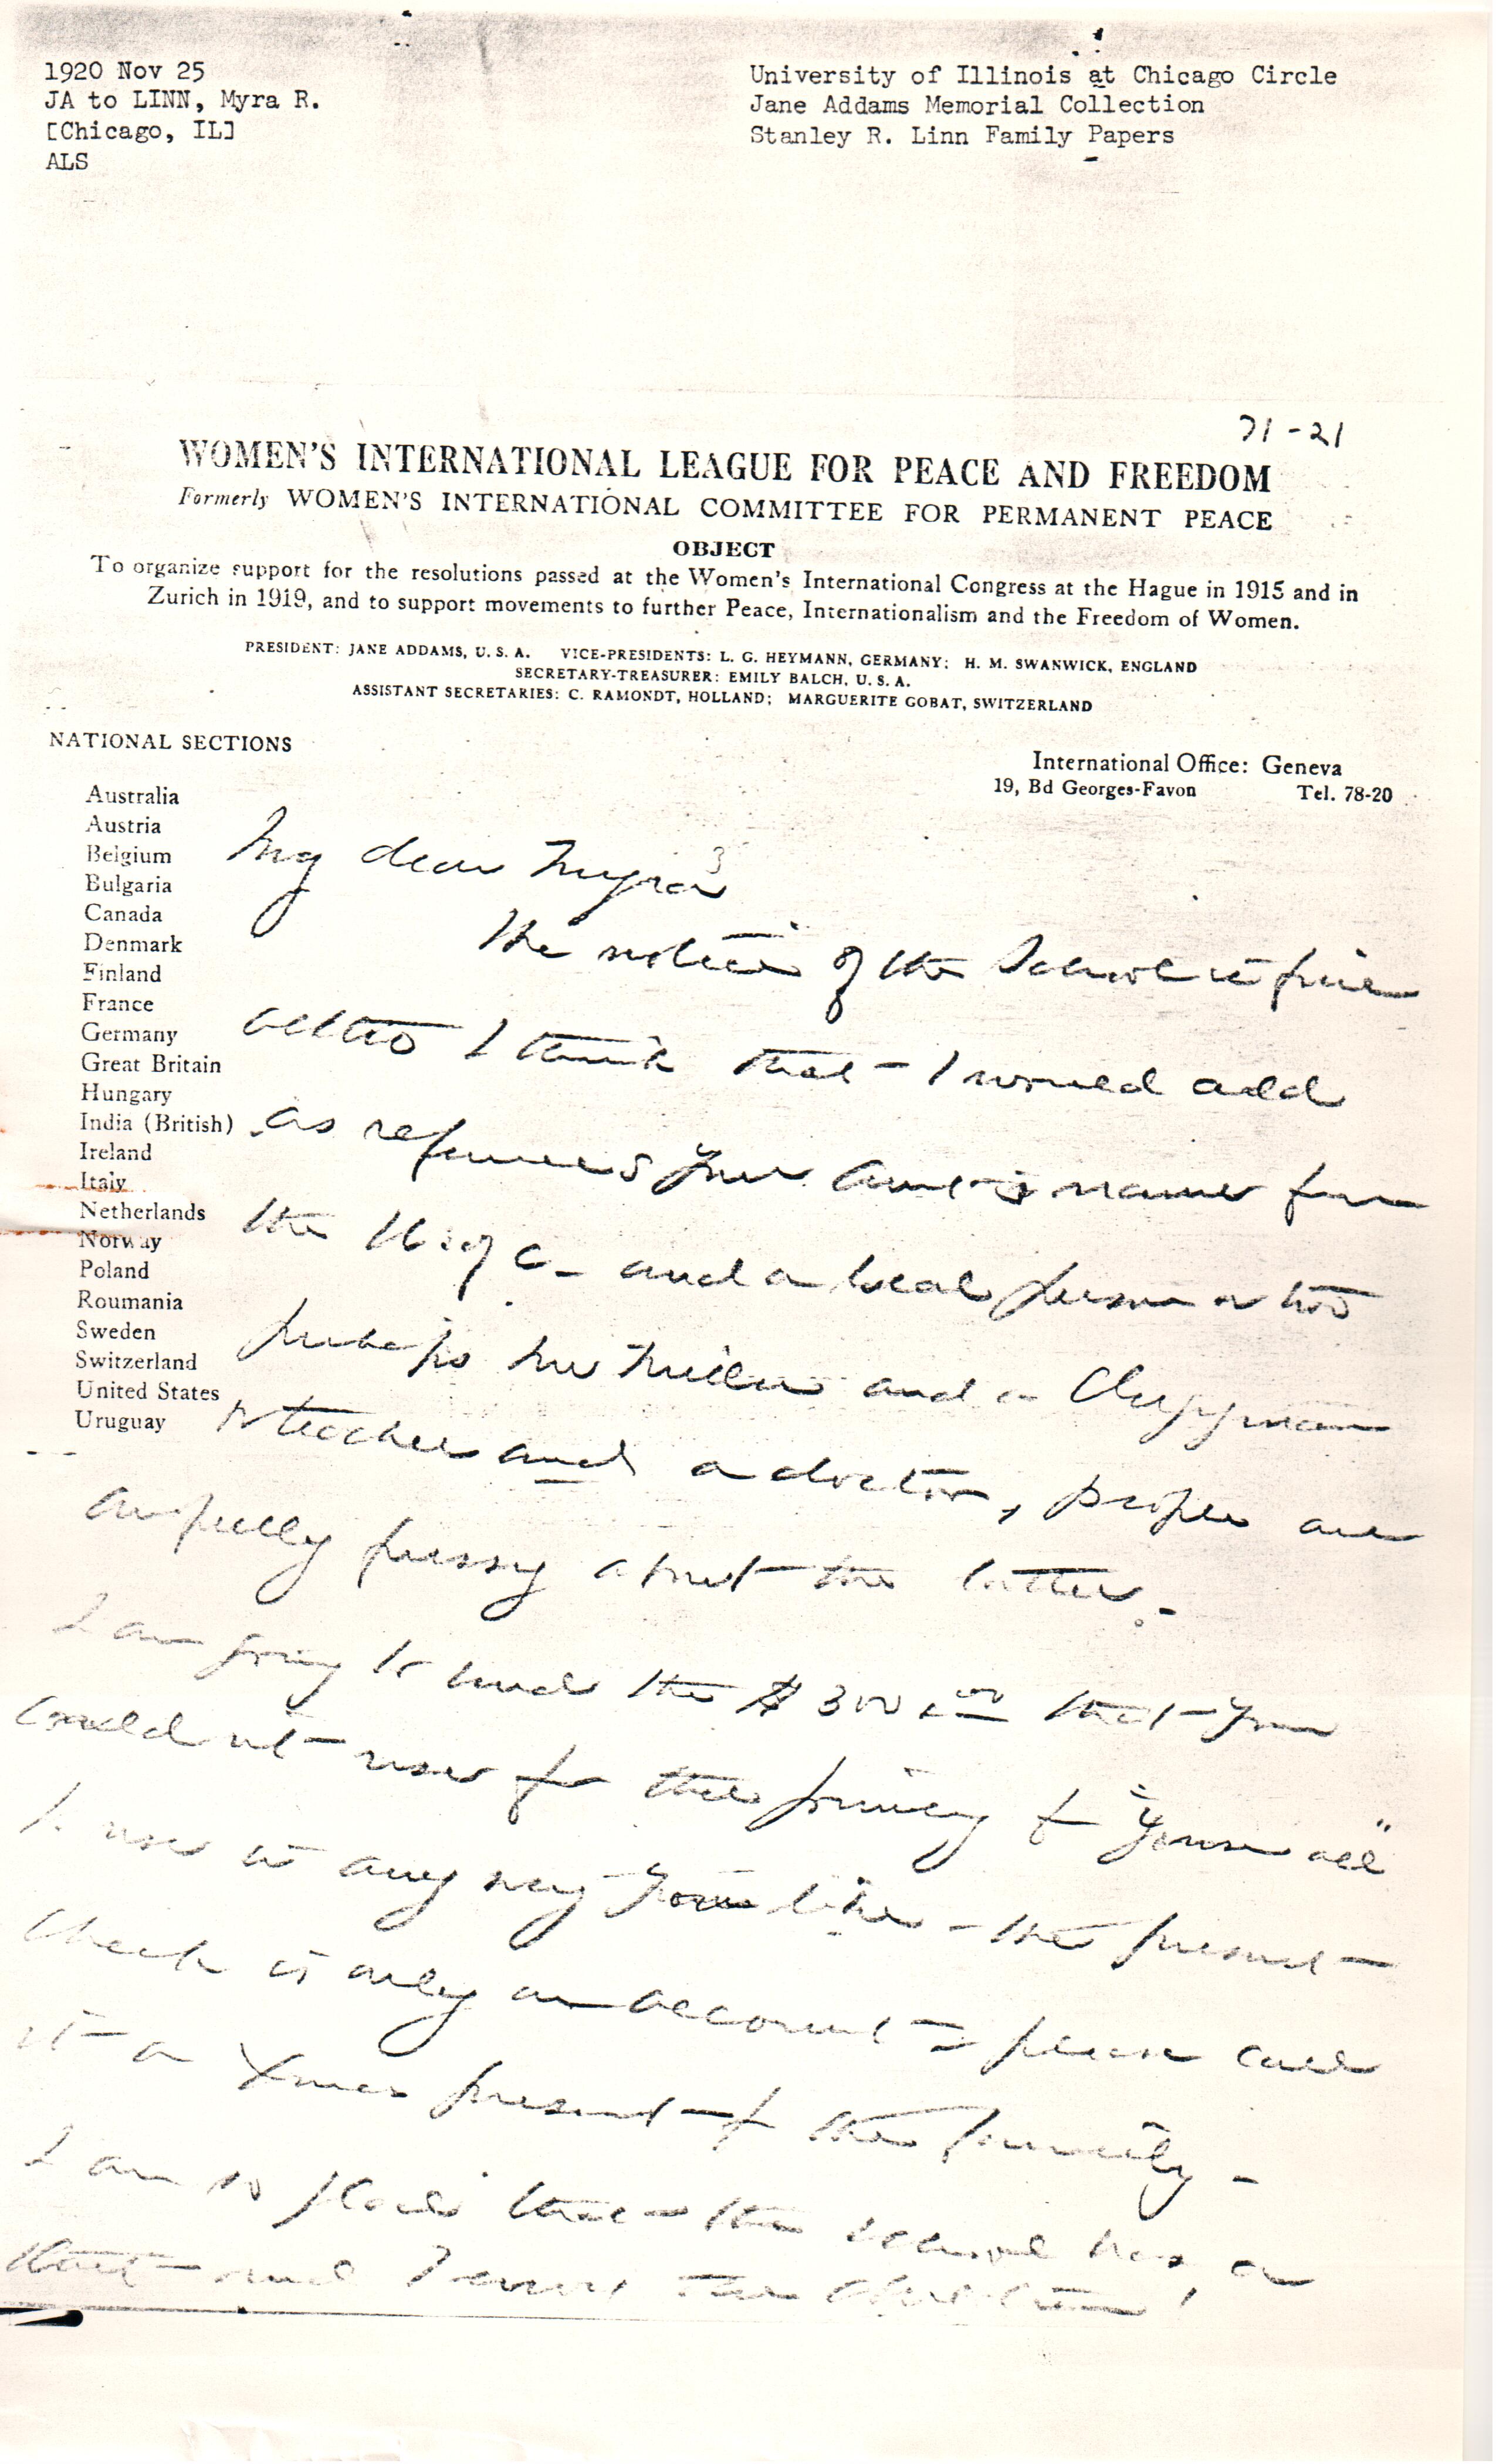 1920 Nov 25
JA to LINN, Myra R.
[Chicago, IL]
ALS
University of Illinois at Chicago Circle
Jane Addams Memorial Collection
Stanley R. Linn Family Papers
71-21
WOMEN'S INTERNATIONAL LEAGUE FOR PEACE AND FREEDOM
Formerly WOMEN'S INTERNATIONAL COMMITTEE FOR PERMANENT PEACE
OBJECT
To organize support for the resolutions passed at the Women's International Congress at the Hague in 1915 and in
Zurich in 1919, and to support movements to further Peace, Internationalism and the Freedom of Women.
PRESIDENT: JANE ADDAMS, U. S. A. VICE-PRESIDENTS: L. G. HEYMANN, GERMANY; H. M. SWANWICK, ENGLAND
SECRETARY-TREASURER: EMILY BALCH, U. S. A.
ASSISTANT SECRETARIES: C. RAMONDT, HOLLAND; MARGUERITE GOBAT, SWITZERLAND
NATIONAL SECTIONS
Australia
Austria
Belgium
Bulgaria
Canada
Denmark
Finland
France
Germany
Great Britain
Hungary
India (British)
Ireland
Italy
Netherlands
Norway
Poland
Roumania
Sweden
Switzerland
United States
Uruguay
International Office: Geneva
19, Bd Georges-Favon Tel. 78-20
My dear Myra
The notice of the School is fine
altho I think that I would add
as references your aunt's name for
the U. of C. and a local person or two
perhaps Mrs and a
teacher and a doctor, people are
awfully fussy about the latter.
I am going to send the $300.00 that you
could not use for the journey to "Youse all"
to use in any way you like - the present
check is only on account - please call
it a Xmas present to the family -
I am so glad that the school has a
start and the children!